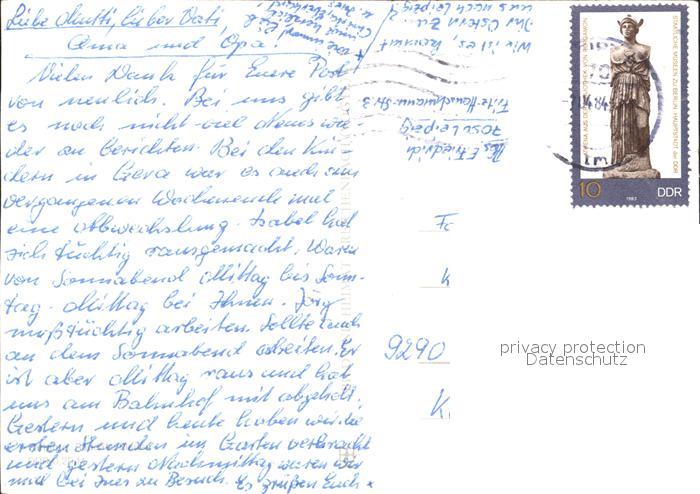 Liebe Mutti, lieber Vati,
Oma und Opa!
Vielen Dank für Eure Post
von neulich. Bei uns gibt
es noch nicht viel Neues wie-
der zu berichten. Bei den Kin-
dern in Gera war es auch am
vergangenen Wochenende mal
eine Abwechslung. Isabel hat
sich tüchtig rausgemacht. Waren
von Sonnabend Mittag bis Sonn-
tag-Mittag bei Ihnen. Jörg
muß tüchtig arbeiten. Sollte auch
an dem Sonnabend arbeiten. Er
ist aber Mittag raus und hat
uns am Bahnhof mit abgeholt.
Gestern und heute haben wir die
ersten Stunden im Garten verbracht
und gestern Nachmittag waren wir
mal bei Ines zu Besuch. Es grüßen Euch x
Wie ist es, kommt
Ihr Ostern zu
uns nach Leipzig?
Abs. E. Friedrich
7033 Leipzig
Fritz-Hanschmann-Str. 3
9290
STAATLICHE MUSEEN ZU BERLIN, HAUPTSTADT der DDR
ATHENA AUS DER BIBLIOTHEK VON PERGAMON
10
1983
DDR
privacy protection
Datenschutz